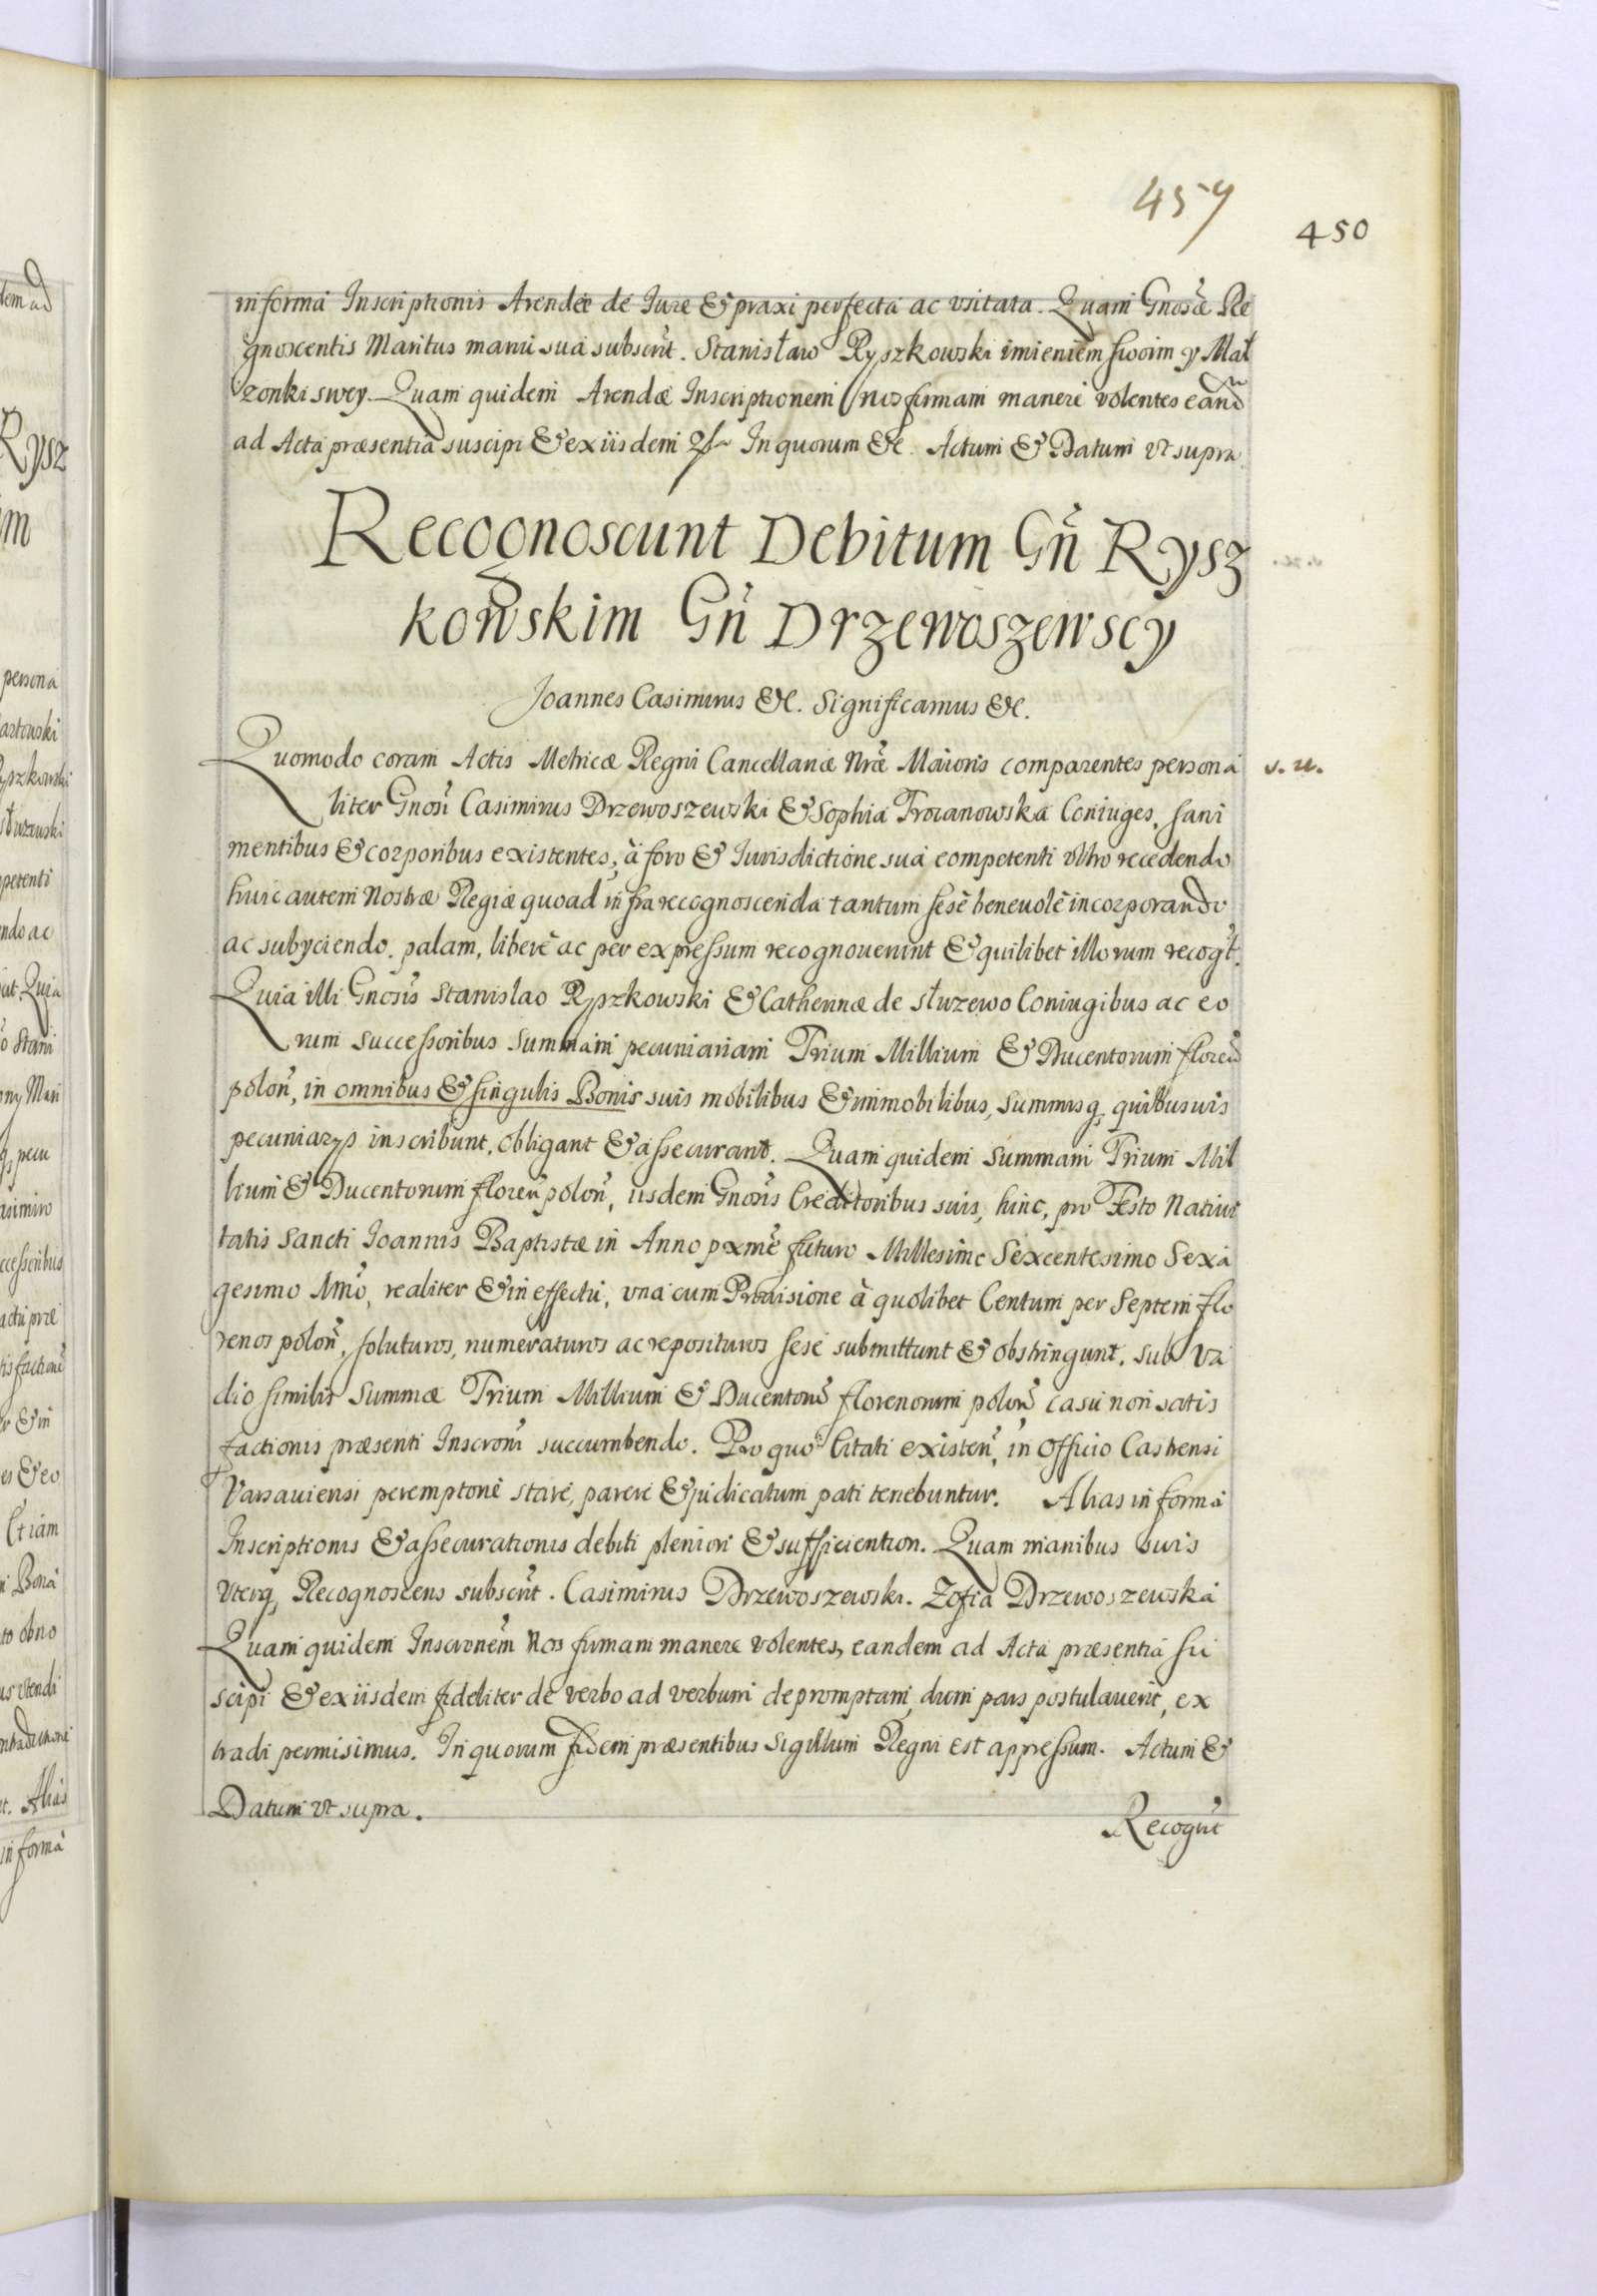 457
450
in forma Inscriptionis Arendæ de Iure & praxi perfecta ac usitata. Quam Gnosæ Re
gnoscentis Maritus manu sua subscrit. Stanisław Ryszkowski imieniem swoim y Mał
zonki swey. Quam quidem Arendæ Inscriptionem nos firmam manere volentes eand
ad Acta præsentia suscipi & ex iisdem In quorum &c. Actum & Datum vt supra
Recognoscunt Debitum Gn̄ Rysz
kowskim Gn̄ Drzewoszewscy
Joannes Casimirus &c. Significamus &c.
Quomodo coram Actis Metricæ Regni Cancellariæ Nræ Maioris comparentes persona
v. re.
liter Gnosi Casimirus Drzewoszewski & Sophia Troianowska Coniuges, sani
mentibus & corporibus existentes, à foro & Iurisdictione sua competenti vltro recedendo
huic autem Nostræ Regiæ quoad infra recognoscenda tantum sesè beneuolè incorporando
ac subyciendo, palam, liberè ac per expressum recognouerunt & quilibet illorum recogt.
Quia illi Gnosis Stanislao Ryszkowski & Catherinæ de Służewo Coniugibus ac eo
rum successoribus summam pecuniariam Trium Millium & Ducentorum floren
polon, in omnibus & singulis Bonis suis mobilibus & immobilibus, summisq, quibusuis
pecuniarys inscribunt, obligant & assecurant. Quam quidem summam Trium Mil
lium & Ducentorum floren polon, iisdem Gnosis Creditoribus suis, hinc, pro Festo Natiui
tatis Sancti Joannis Baptistæ in Anno pxme futuro Millesimo Sexcentesimo Sexa
gesimo Imo, realiter & in effectu, vna cum Prouisione à quolibet Centum per Septem flo
renos polon, soluturos, numeraturos ac reposituros sese submittunt & obstringunt, sub Va
dio similis summæ Trium Millium & Ducentorū florenorum polon casu non satis
factionis præsenti Inscroni succumbendo. Pro quo Citati existen, in Officio Castrensi
Varsauiensi peremptoriè stare, parere & judicatum pati tenebuntur. Alias in forma
Inscriptionis & assecurationis debiti pleniori & sufficientiori. Quam manibus suis
Vterq, Recognoscens subscrit. Casimirus Drzewoszewski. Zofia Drzewoszewska
Quam quidem Inscronem Nos firmam manere volentes, eandem ad Acta præsentia su
scipi & ex iisdem fideliter de verbo ad verbum depromptam, dum pars postulauerit, ex
tradi permisimus. In quorum fidem præsentibus Sigillum Regni est appressum. Actum &
Datum vt supra.
Recogut